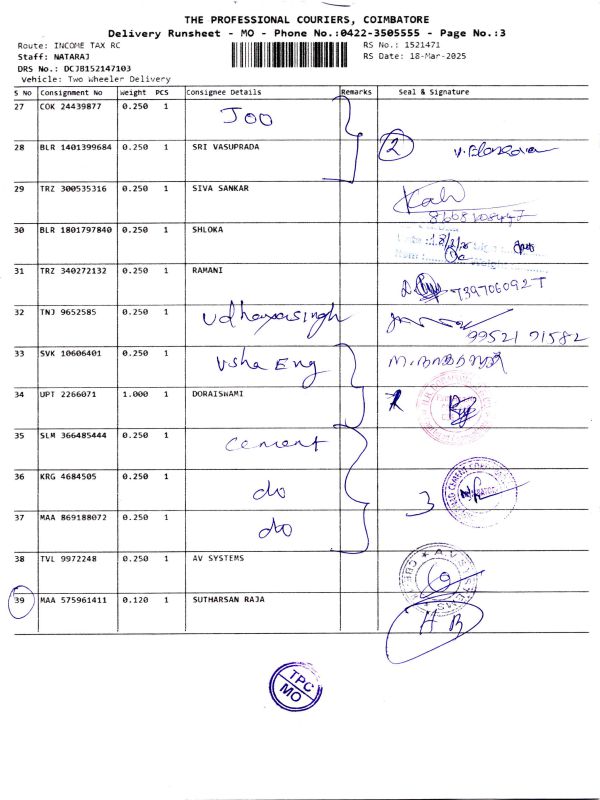 THE PROFESSIONAL COURIERS, COIMBATORE
Delivery Runsheet - MO - Phone No.:0422-3505555 - Page No.:3
Route: INCOME TAX RC RS No.: 1521471
Staff: NATARAJ RS Date: 18-Mar-2025
DRS No.: DCJB152147103
Vehicle: Two Wheeler Delivery
S No Consignment No Weight PCS Consignee Details Remarks Seal & Signature
27 COK 24439877 0.250 1 Joo
28 BLR 1401399684 0.250 1 SRI VASUPRADA 2
29 TRZ 300535316 0.250 1 SIVA SANKAR
30 BLR 1801797840 0.250 1 SHLOKA
31 TRZ 340272132 0.250 1 RAMANI
32 TNJ 9652585 0.250 1 Udhayasingh 99521 91582
33 SVK 10606401 0.250 1 Usha Eng
34 UPT 2266071 1.000 1 DORAISWAMI
35 SLM 366485444 0.250 1 cement
36 KRG 4684505 0.250 1 do 3
37 MAA 869188072 0.250 1 do
38 TVL 9972248 0.250 1 AV SYSTEMS
39 MAA 575961411 0.120 1 SUTHARSAN RAJA
TPC
MO